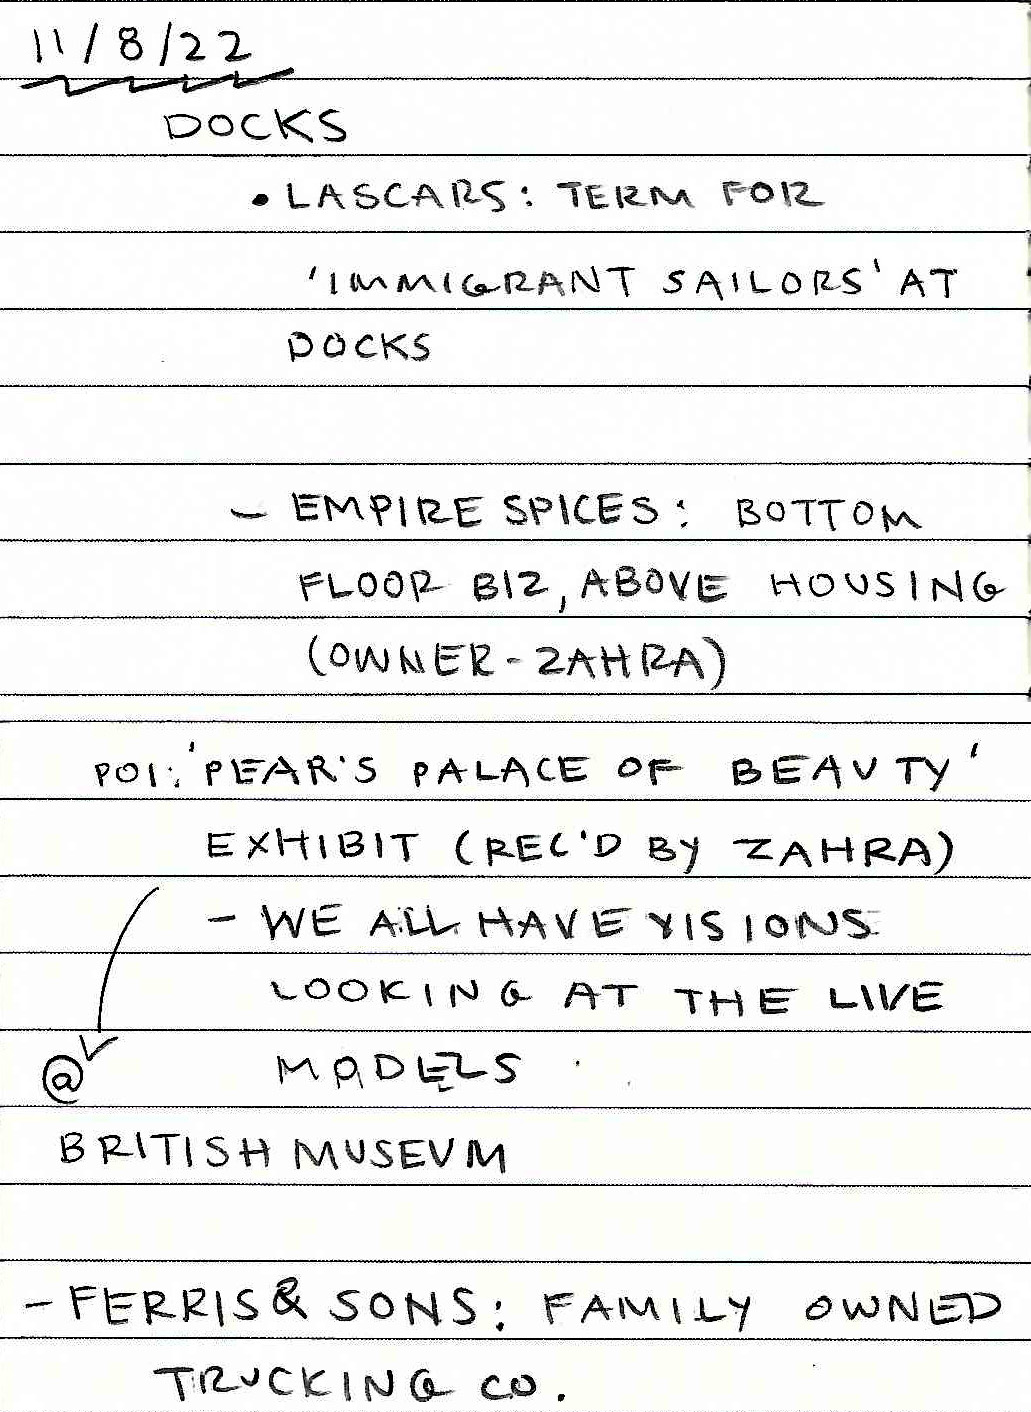 11/8/22
DOCKS
• LASCARS: TERM FOR
'IMMIGRANT SAILORS' AT
DOCKS
- EMPIRE SPICES: BOTTOM
FLOOR BIZ, ABOVE HOUSING
(OWNER-ZAHRA)
POI: 'PEAR'S PALACE OF BEAUTY'
EXHIBIT (REC'D BY ZAHRA)
- WE ALL HAVE VISIONS
LOOKING AT THE LIVE
@ MODELS
BRITISH MUSEUM
- FERRIS & SONS: FAMILY OWNED
TRUCKING CO.